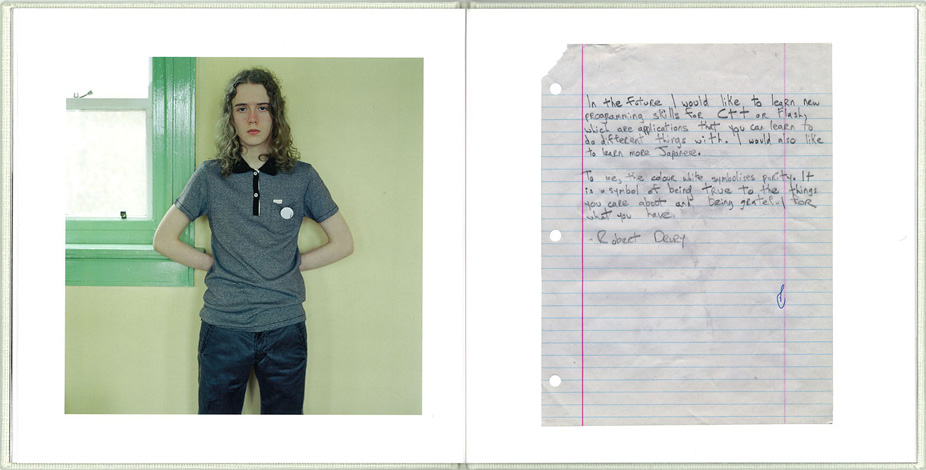 In the future I would like to learn new
programming skills for C++ or Flash,
which are applications that you can learn to
do different things with. I would also like
to learn more Japanese.
To me, the colour white symbolises purity. It
is a symbol of being true to the things
you care about and being grateful for
what you have.
- Robert